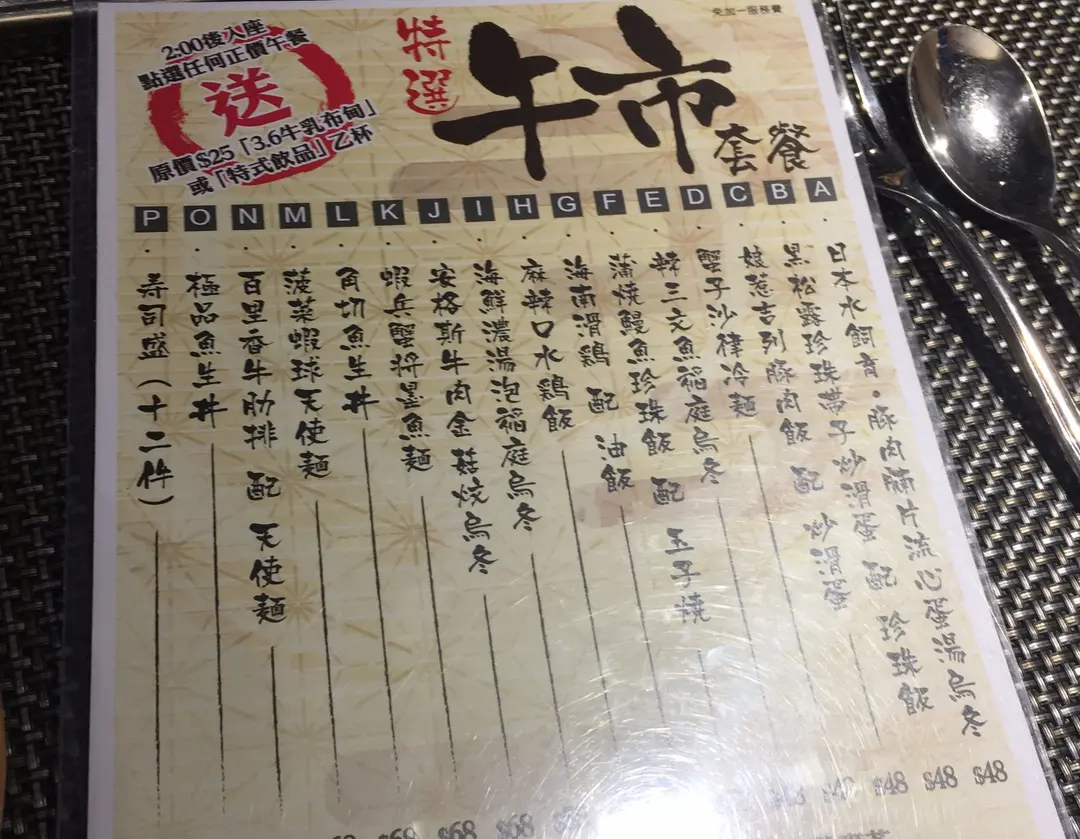 2:00後入座
點選任何正價午餐
送
原價$25「3.6牛乳布甸」
或「特式飲品」乙杯
特選
午市
套餐
免加一服務費
A・日本水飼育・豚肉腩片流心蛋湯烏冬
B・黑松露珍珠帶子炒滑蛋 配 珍珠飯
C・妓惹吉列豚肉飯 配 炒滑蛋
D・蟹子沙律冷麵
E・辣三文魚稻庭烏冬
F・蒲燒鰻魚珍珠飯 配 玉子燒
G・海南滑鷄 配 油飯
H・麻辣口水鷄飯
I・海鮮濃湯泡稻庭烏冬
J・安格斯牛肉金菇炆烏冬
K・蝦兵蟹將墨魚麵
L・角切魚生丼
M・菠菜蝦球天使麵
N・百里香牛肋排 配 天使麵
O・極品魚生丼
P・寿司盛（十二件）
$48
$48
$48
$68
$68
$68